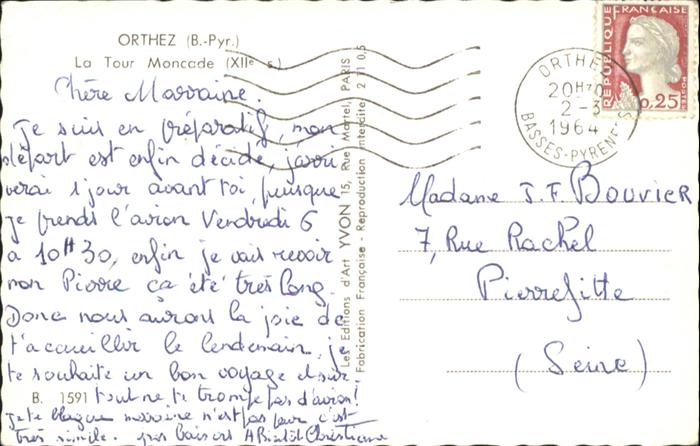 ORTHEZ (B.-Pyr.)
La Tour Moncade (XIIe s.)
Chère Marraine.
Je suis en préparatif, mon
départ est enfin décidé, j'arri
verai 1 jour avant toi, puisque
je prends l'avion Vendredi 6
à 10H30, enfin je vais revoir
mon Pierre ça été très long.
Donc nous aurons la joie de
t'accueillir le lendemain, je
te souhaite un bon voyage et sur
B. 1591 tout ne te trompe pas d'avion!
je te blague marraine n'est pas peur c'est
très simple. gros baisers A Bientôt Christiane
Les Editions d'Art YVON 15, Rue Martel, PARIS
Fabrication Française - Reproduction interdite 2 1105
REPUBLIQUE FRANÇAISE
POSTES
0,25
ORTHEZ
20H30
2-3
1964
BASSES-PYRENEES
Madame J.F. BOUVIER
7, Rue Rachel
Pierrefitte
(Seine)